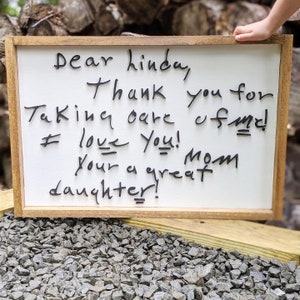 Dear Linda,
Thank you for
Taking care of me!
I love You!
Your a great Mom
daughter!